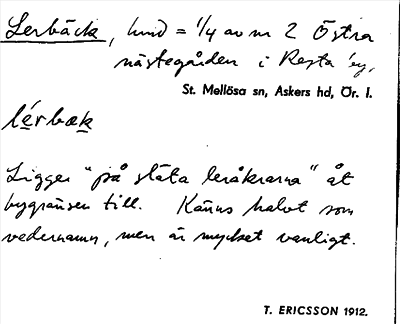 Lerbäck, hmd = 1/4 av nr 2 Östra
nästegården i Resta by,
St. Mellösa sn, Askers hd, Ör. l.
lérbæk
Ligger "på släta leråkrarna" åt
bygränsen till. Känns halvt som
vedernamn, men är mycket vanligt.
T. ERICSSON 1912.